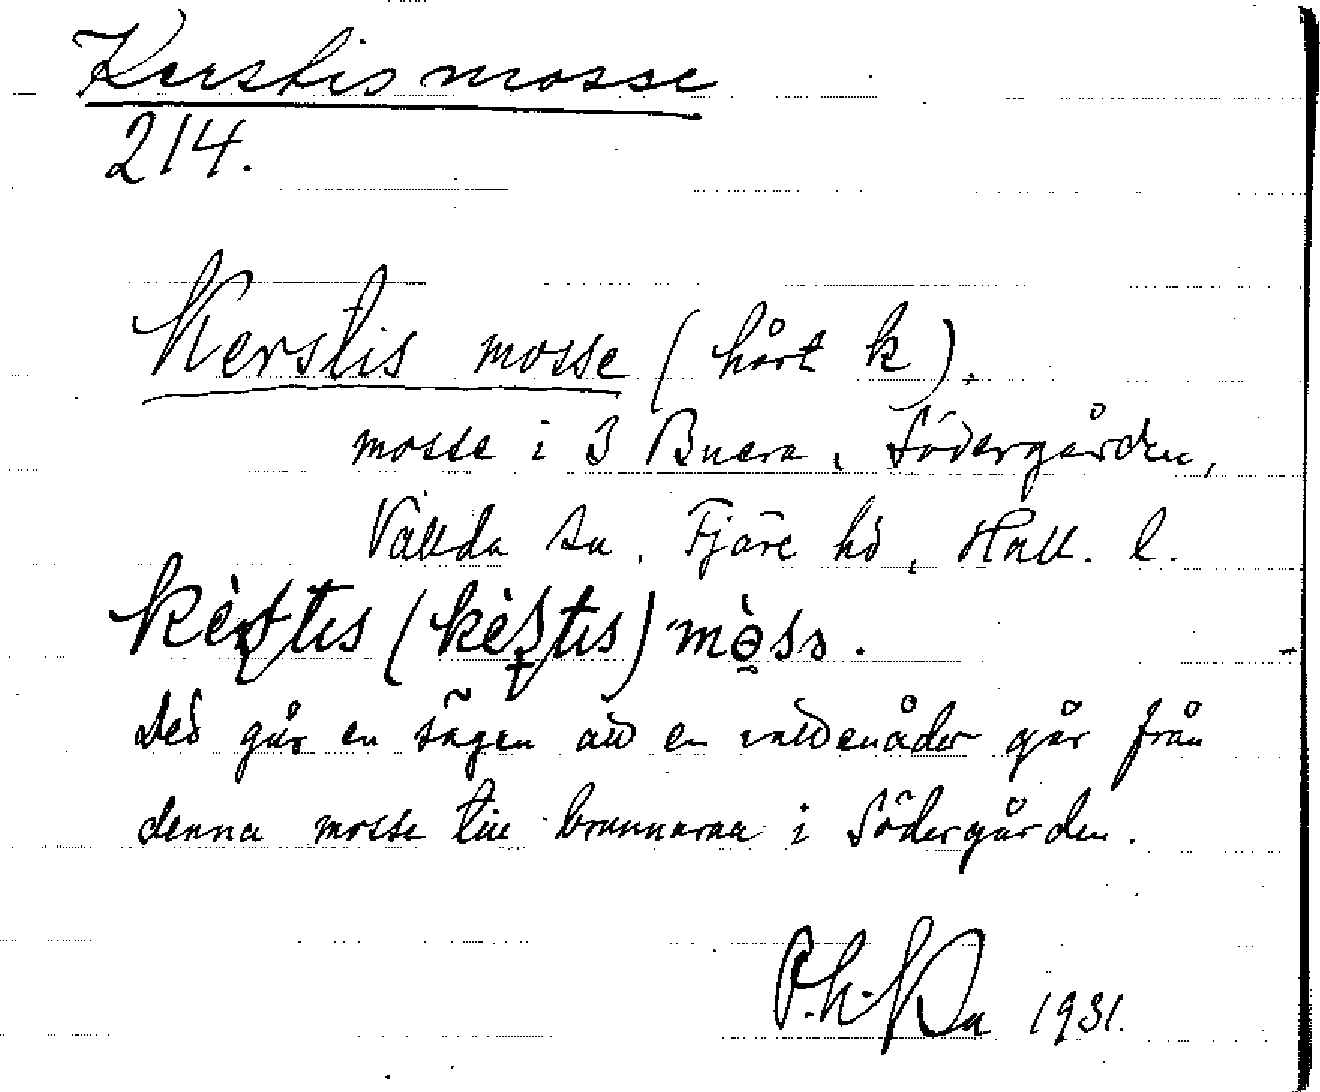 Kerstis mosse
214.
Kerstis mosse (hårt k),
mosse i 3 Buera, Södergården,
Vallda sn, Fjäre hd, Hall. l.
kèstɩs (kèstɩs) mòss.
Det går en sägen att en vattenåder går från
denna mosse till brunnarna i Södergården.
1931.